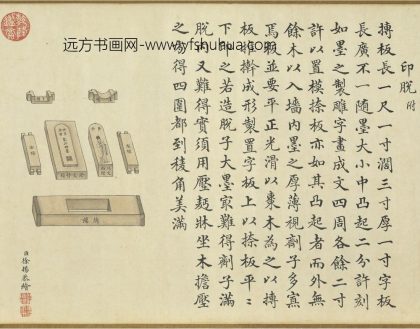 远方书画网-www.yfshuhua.com
印脱附
摶板長一尺一寸濶三寸厚一寸字板
長廣不一随墨大小中凸起二分許刻
如墨之製雕字畫成文四周各餘二寸
許以置模捺板亦如其凸起者而外無
餘木以入墻内墨之厚薄視劑子多寡
焉板並要平正光滑以棗木為之以摶
板成形製置字板上以捺板平平
下捺之若造脱子大墨家難得劑子滿
脱又難得實須用壓麺牀坐木擔壓
之得四圍都到稜角美滿
臣徐揚恭繪